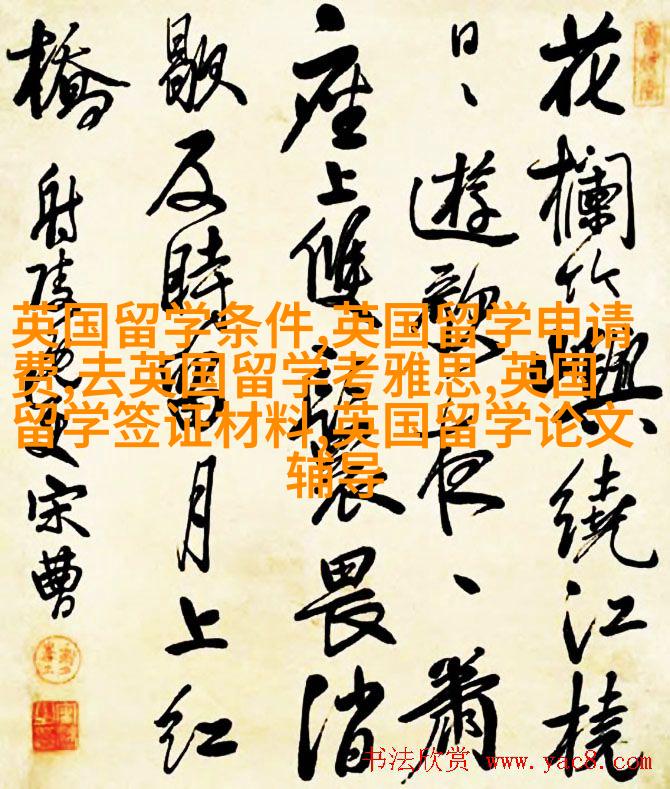 花欄竹繞江橈
日日遊歌夜夜簫
座上畏消
反時月上紅
橋
射陵逸史宋曹
英国留学条件,英国留学申请
费,去英国留学考雅思,英国
留学签证材料,英国留学论文
辅导
书法欣赏 www.yac8.com